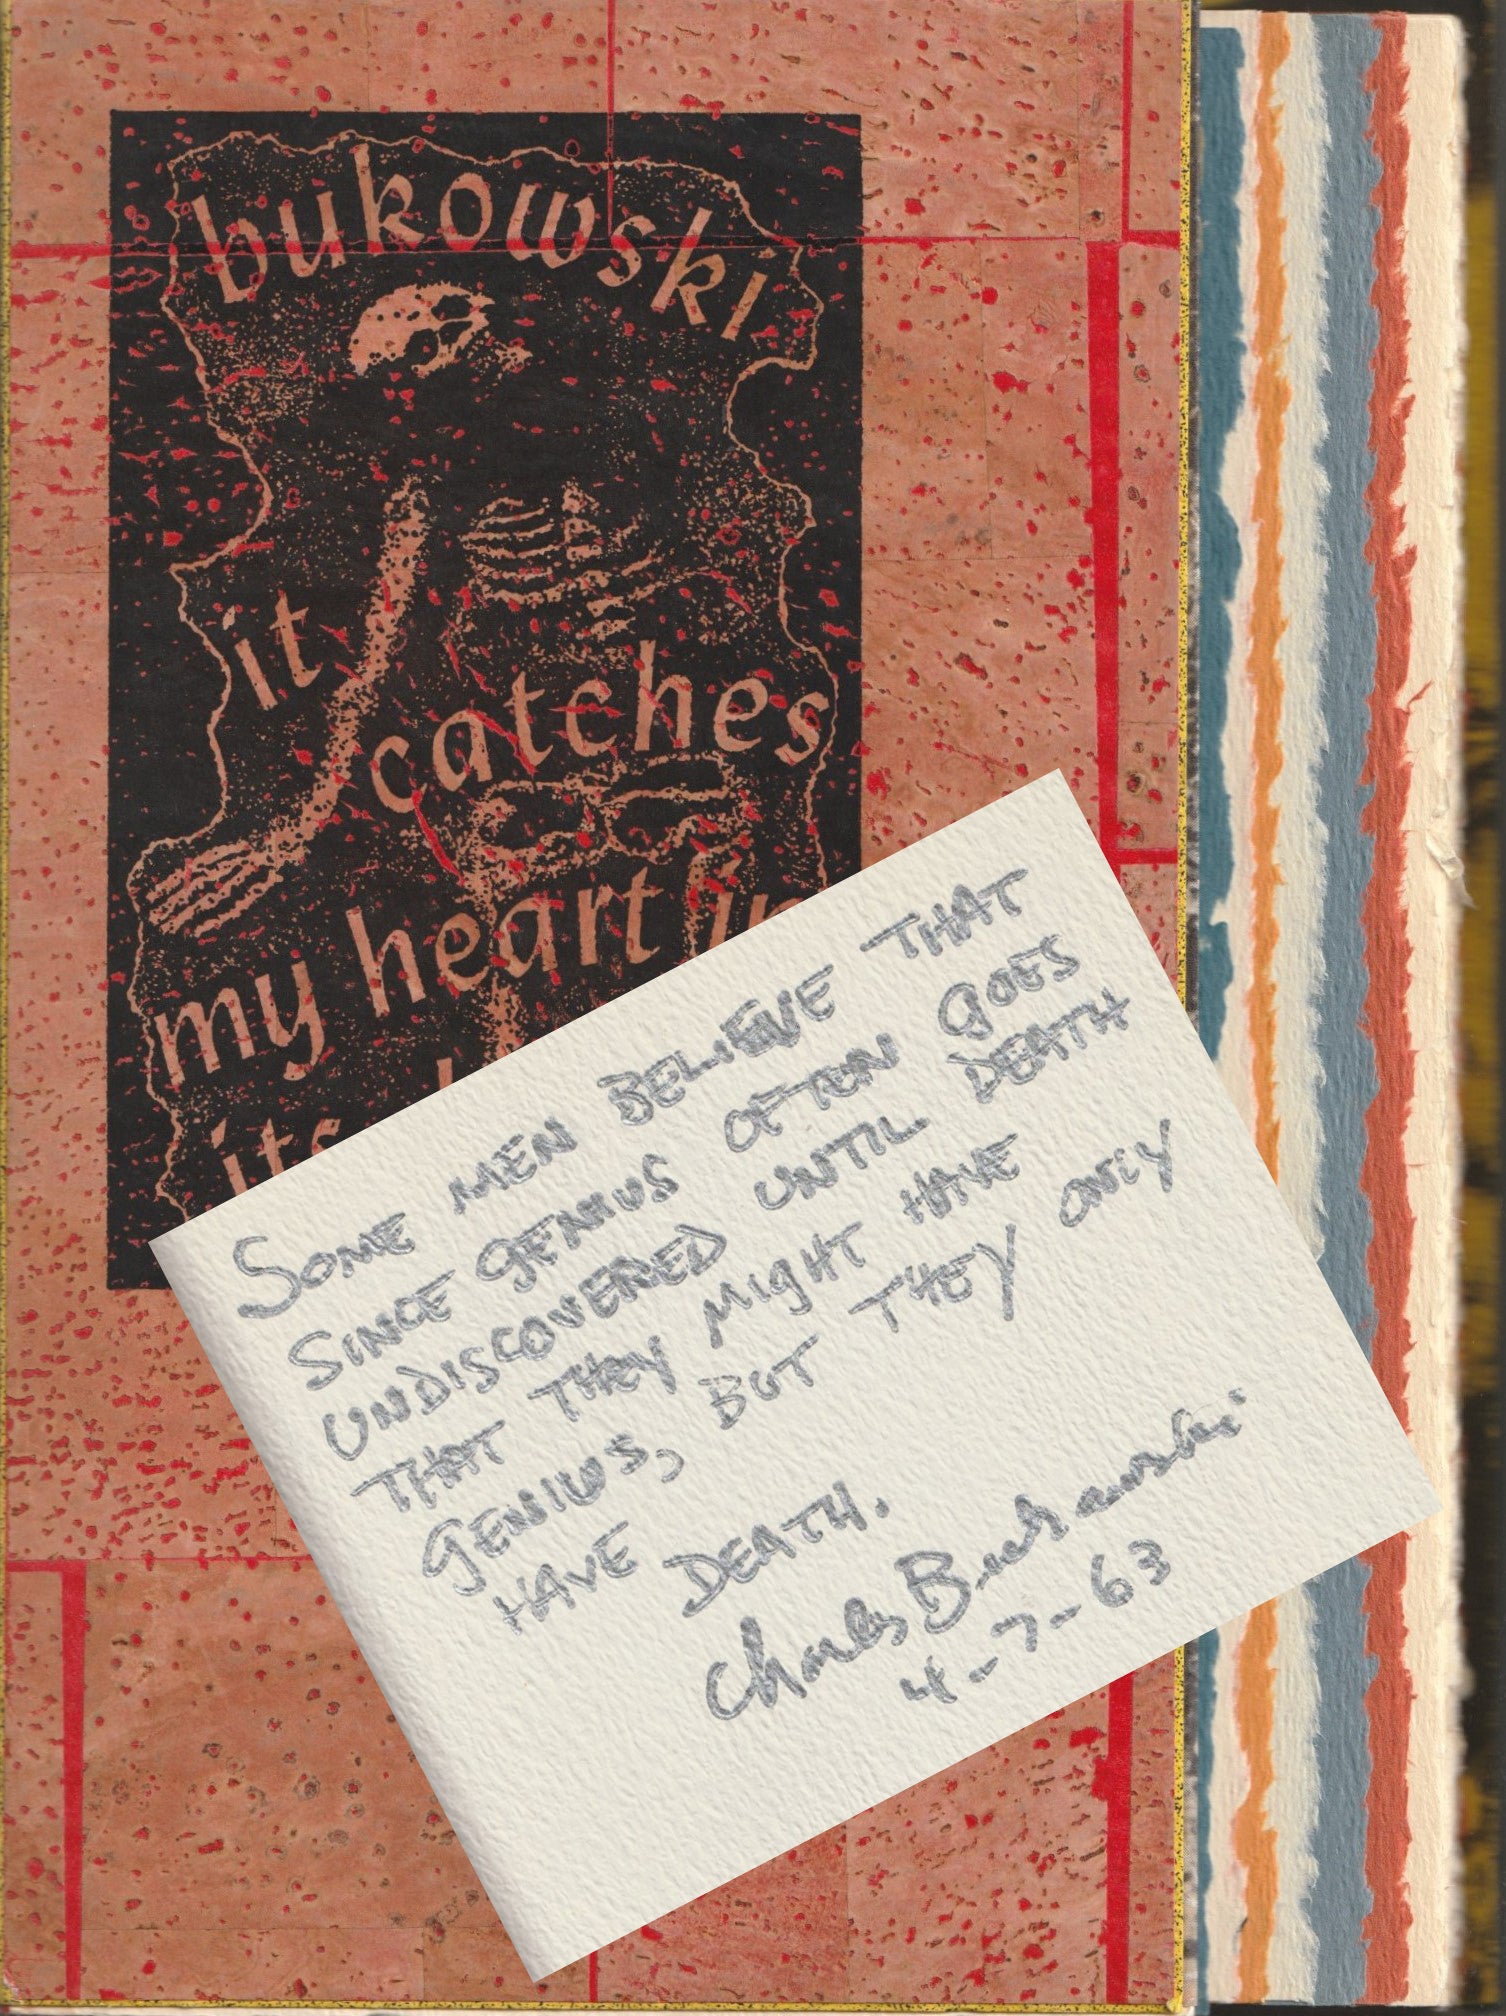 bukowski
it
catches
my heart in
its
SOME MEN BELIEVE THAT
SINCE GENIUS OFTEN GOES
UNDISCOVERED UNTIL DEATH
THAT THEY MIGHT HAVE
GENIUS, BUT THEY ONLY
HAVE DEATH.
Charles Bukowski
4-7-63